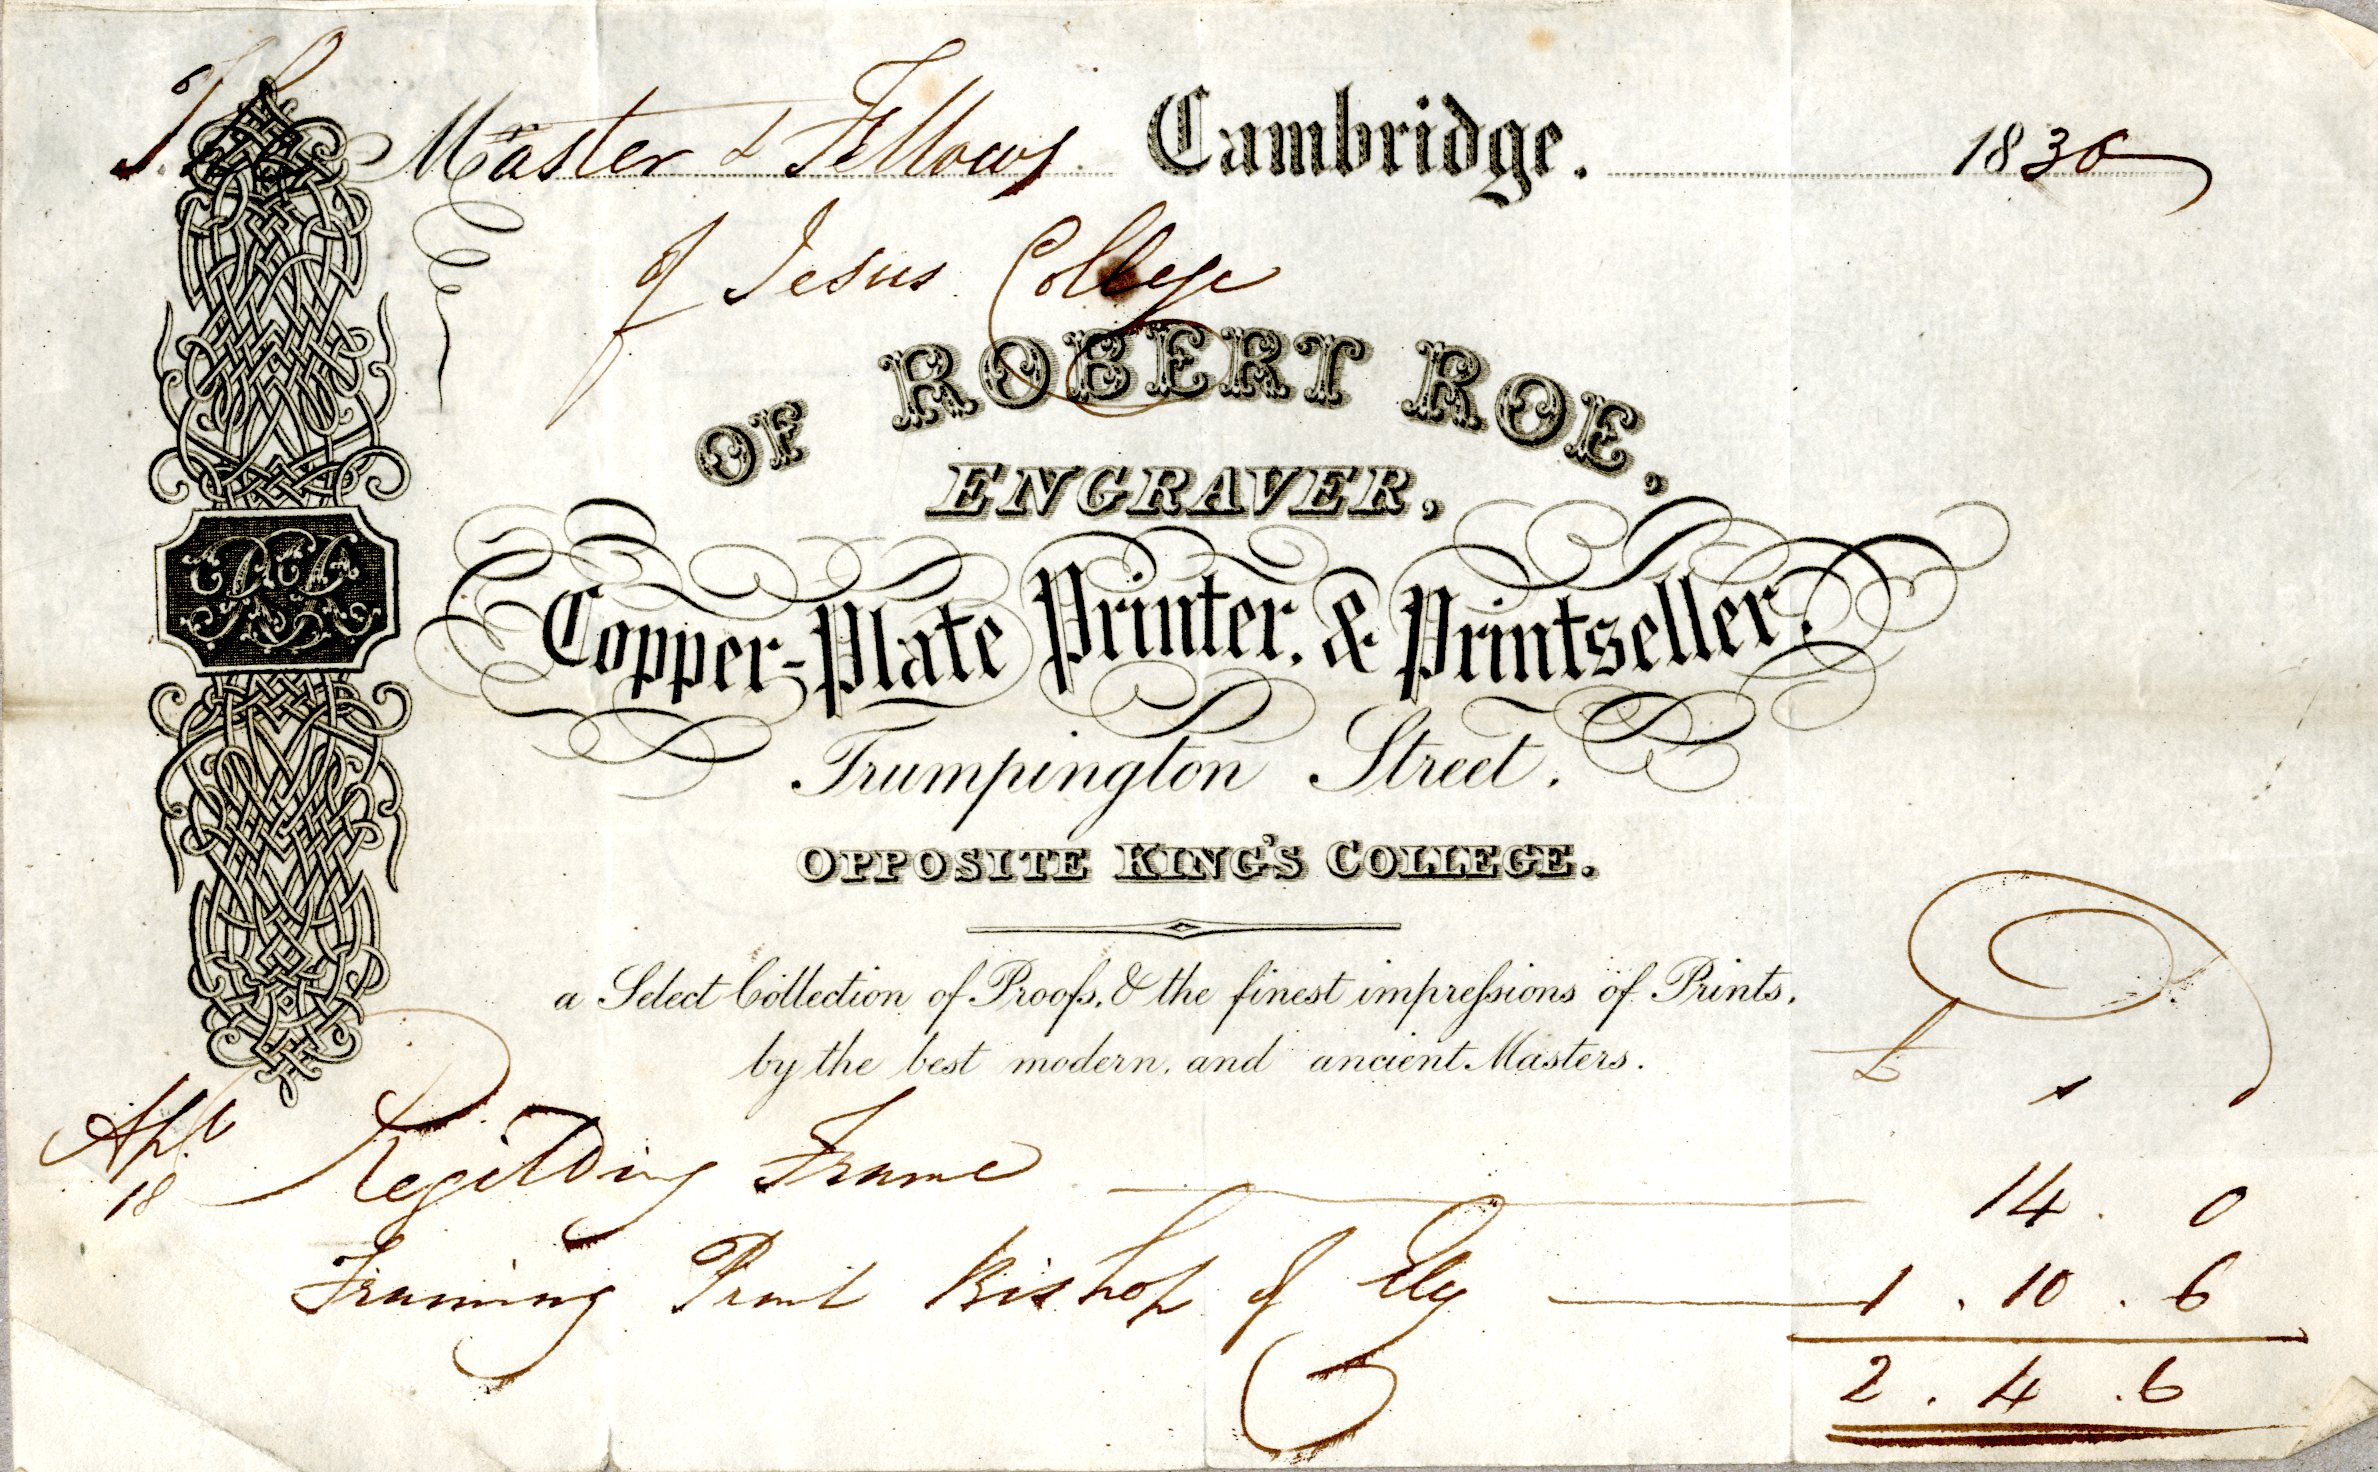 The Master & Fellows Cambridge. 1836
of Jesus College
OF ROBERT ROE,
ENGRAVER,
Copper-Plate Printer, & Printseller,
Trumpington Street.
OPPOSITE KING'S COLLEGE.
a Select Collection of Proofs, & the finest impressions of Prints,
by the best modern, and ancient Masters.
£
Apl
18 Regilding Frame 14. 0
Framing Print Bishop of Ely 1. 10. 6
2. 4. 6